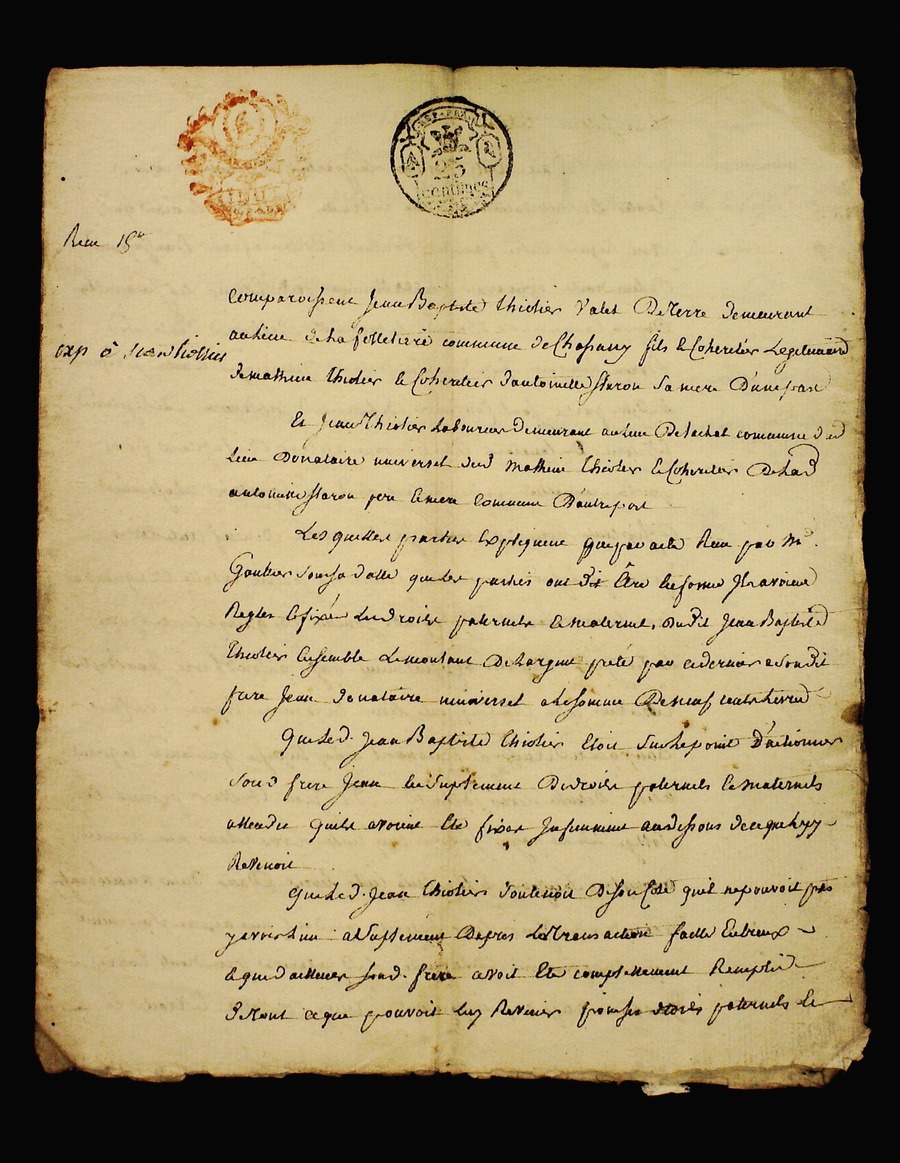 REP. FRA.
25
centimes
Reçu 15
exp à jean thiolier
Comparoissent Jean Baptiste thiolier Valet De terre demeurant
au lieu de la pelletiere commune de Chassawy fils & Coheretier Legitimaire
de mathieu thiolier & Coheretier d'antoinette staron sa mere D'une part
Et Jean Thiolier Laboureur demeurant au lieu De lachat commune dud
lieu Donataire universel dud mathieu thiolier & Coheretier De lad
antoinette staron pere & mere Communs D'autre part
Lesquelles parties Expliquent que par acte Reçu par Me
Gaultier sous sa datte que les parties ont dit Être en forme Il avoient
Regler & fixér Les droits paternels & maternels, dudit Jean Baptiste
thiolier Ensemble Le montant De largent preté par ce dernier a son dit
frere Jean donataire universel a la somme De neuf cents livres
Que Led. Jean Baptiste thiolier Etoit Sur le point D'actionner
Sond frere Jean En Suplement De droits paternels & maternels
attendu quils avoient Eté fixés Infiniment au dessous de ce que luy
Revenoit
Que Led. Jean thiolier Soutenoit De son Coté quil ne pouvoit pas
y avoir lieu a Suplement Daprès La transaction faitte Entreux
& que d'ailleurs sond. frere avoit Eté complettement Remplis
de tout ce que pouvoit luy Revenir pour ses droits paternels &